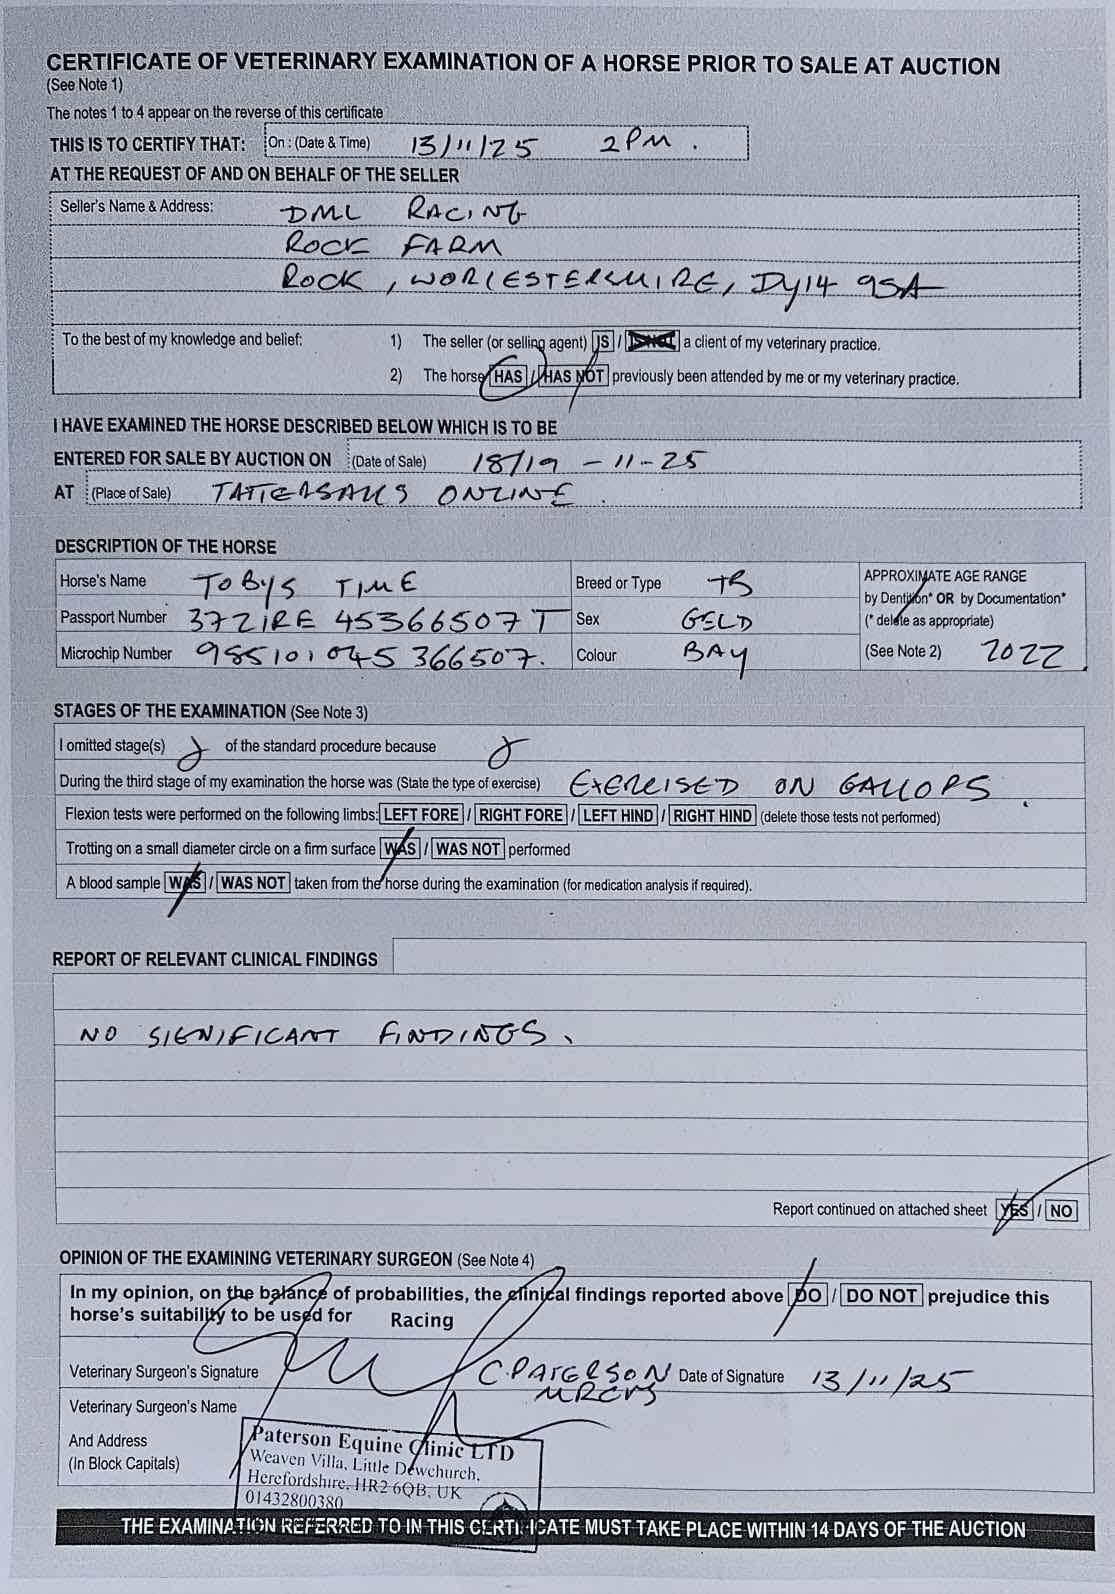 CERTIFICATE OF VETERINARY EXAMINATION OF A HORSE PRIOR TO SALE AT AUCTION
(See Note 1)
The notes 1 to 4 appear on the reverse of this certificate
THIS IS TO CERTIFY THAT: On : (Date & Time) 13/11/25 2PM .
AT THE REQUEST OF AND ON BEHALF OF THE SELLER
Seller's Name & Address: DML RACING
ROCK FARM
ROCK, WORCESTERSHIRE, DY14 9SA
To the best of my knowledge and belief: 1) The seller (or selling agent) IS / IS NOT a client of my veterinary practice.
2) The horse HAS / HAS NOT previously been attended by me or my veterinary practice.
I HAVE EXAMINED THE HORSE DESCRIBED BELOW WHICH IS TO BE
ENTERED FOR SALE BY AUCTION ON (Date of Sale) 18/19 - 11 - 25
AT (Place of Sale) TATTERSALLS ONLINE .
DESCRIPTION OF THE HORSE
Horse's Name TOBYS TIME Breed or Type TB APPROXIMATE AGE RANGE
by Dentition* OR by Documentation*
Passport Number 372IRE 45366507 T Sex GELD (* delete as appropriate)
Microchip Number 985101045366507. Colour BAY (See Note 2) 2022
STAGES OF THE EXAMINATION (See Note 3)
I omitted stage(s) of the standard procedure because
During the third stage of my examination the horse was (State the type of exercise) EXERCISED ON GALLOPS .
Flexion tests were performed on the following limbs: LEFT FORE / RIGHT FORE / LEFT HIND / RIGHT HIND (delete those tests not performed)
Trotting on a small diameter circle on a firm surface WAS / WAS NOT performed
A blood sample WAS / WAS NOT taken from the horse during the examination (for medication analysis if required).
REPORT OF RELEVANT CLINICAL FINDINGS
NO SIGNIFICANT FINDINGS.
Report continued on attached sheet YES / NO
OPINION OF THE EXAMINING VETERINARY SURGEON (See Note 4)
In my opinion, on the balance of probabilities, the clinical findings reported above DO / DO NOT prejudice this
horse's suitability to be used for Racing
Veterinary Surgeon's Signature C. PATERSON Date of Signature 13/11/25
MRCVS
Veterinary Surgeon's Name
And Address
(In Block Capitals)
Paterson Equine Clinic LTD
Weaven Villa, Little Dewchurch,
Herefordshire, HR2 6QB, UK
01432800380
THE EXAMINATION REFERRED TO IN THIS CERTIFICATE MUST TAKE PLACE WITHIN 14 DAYS OF THE AUCTION